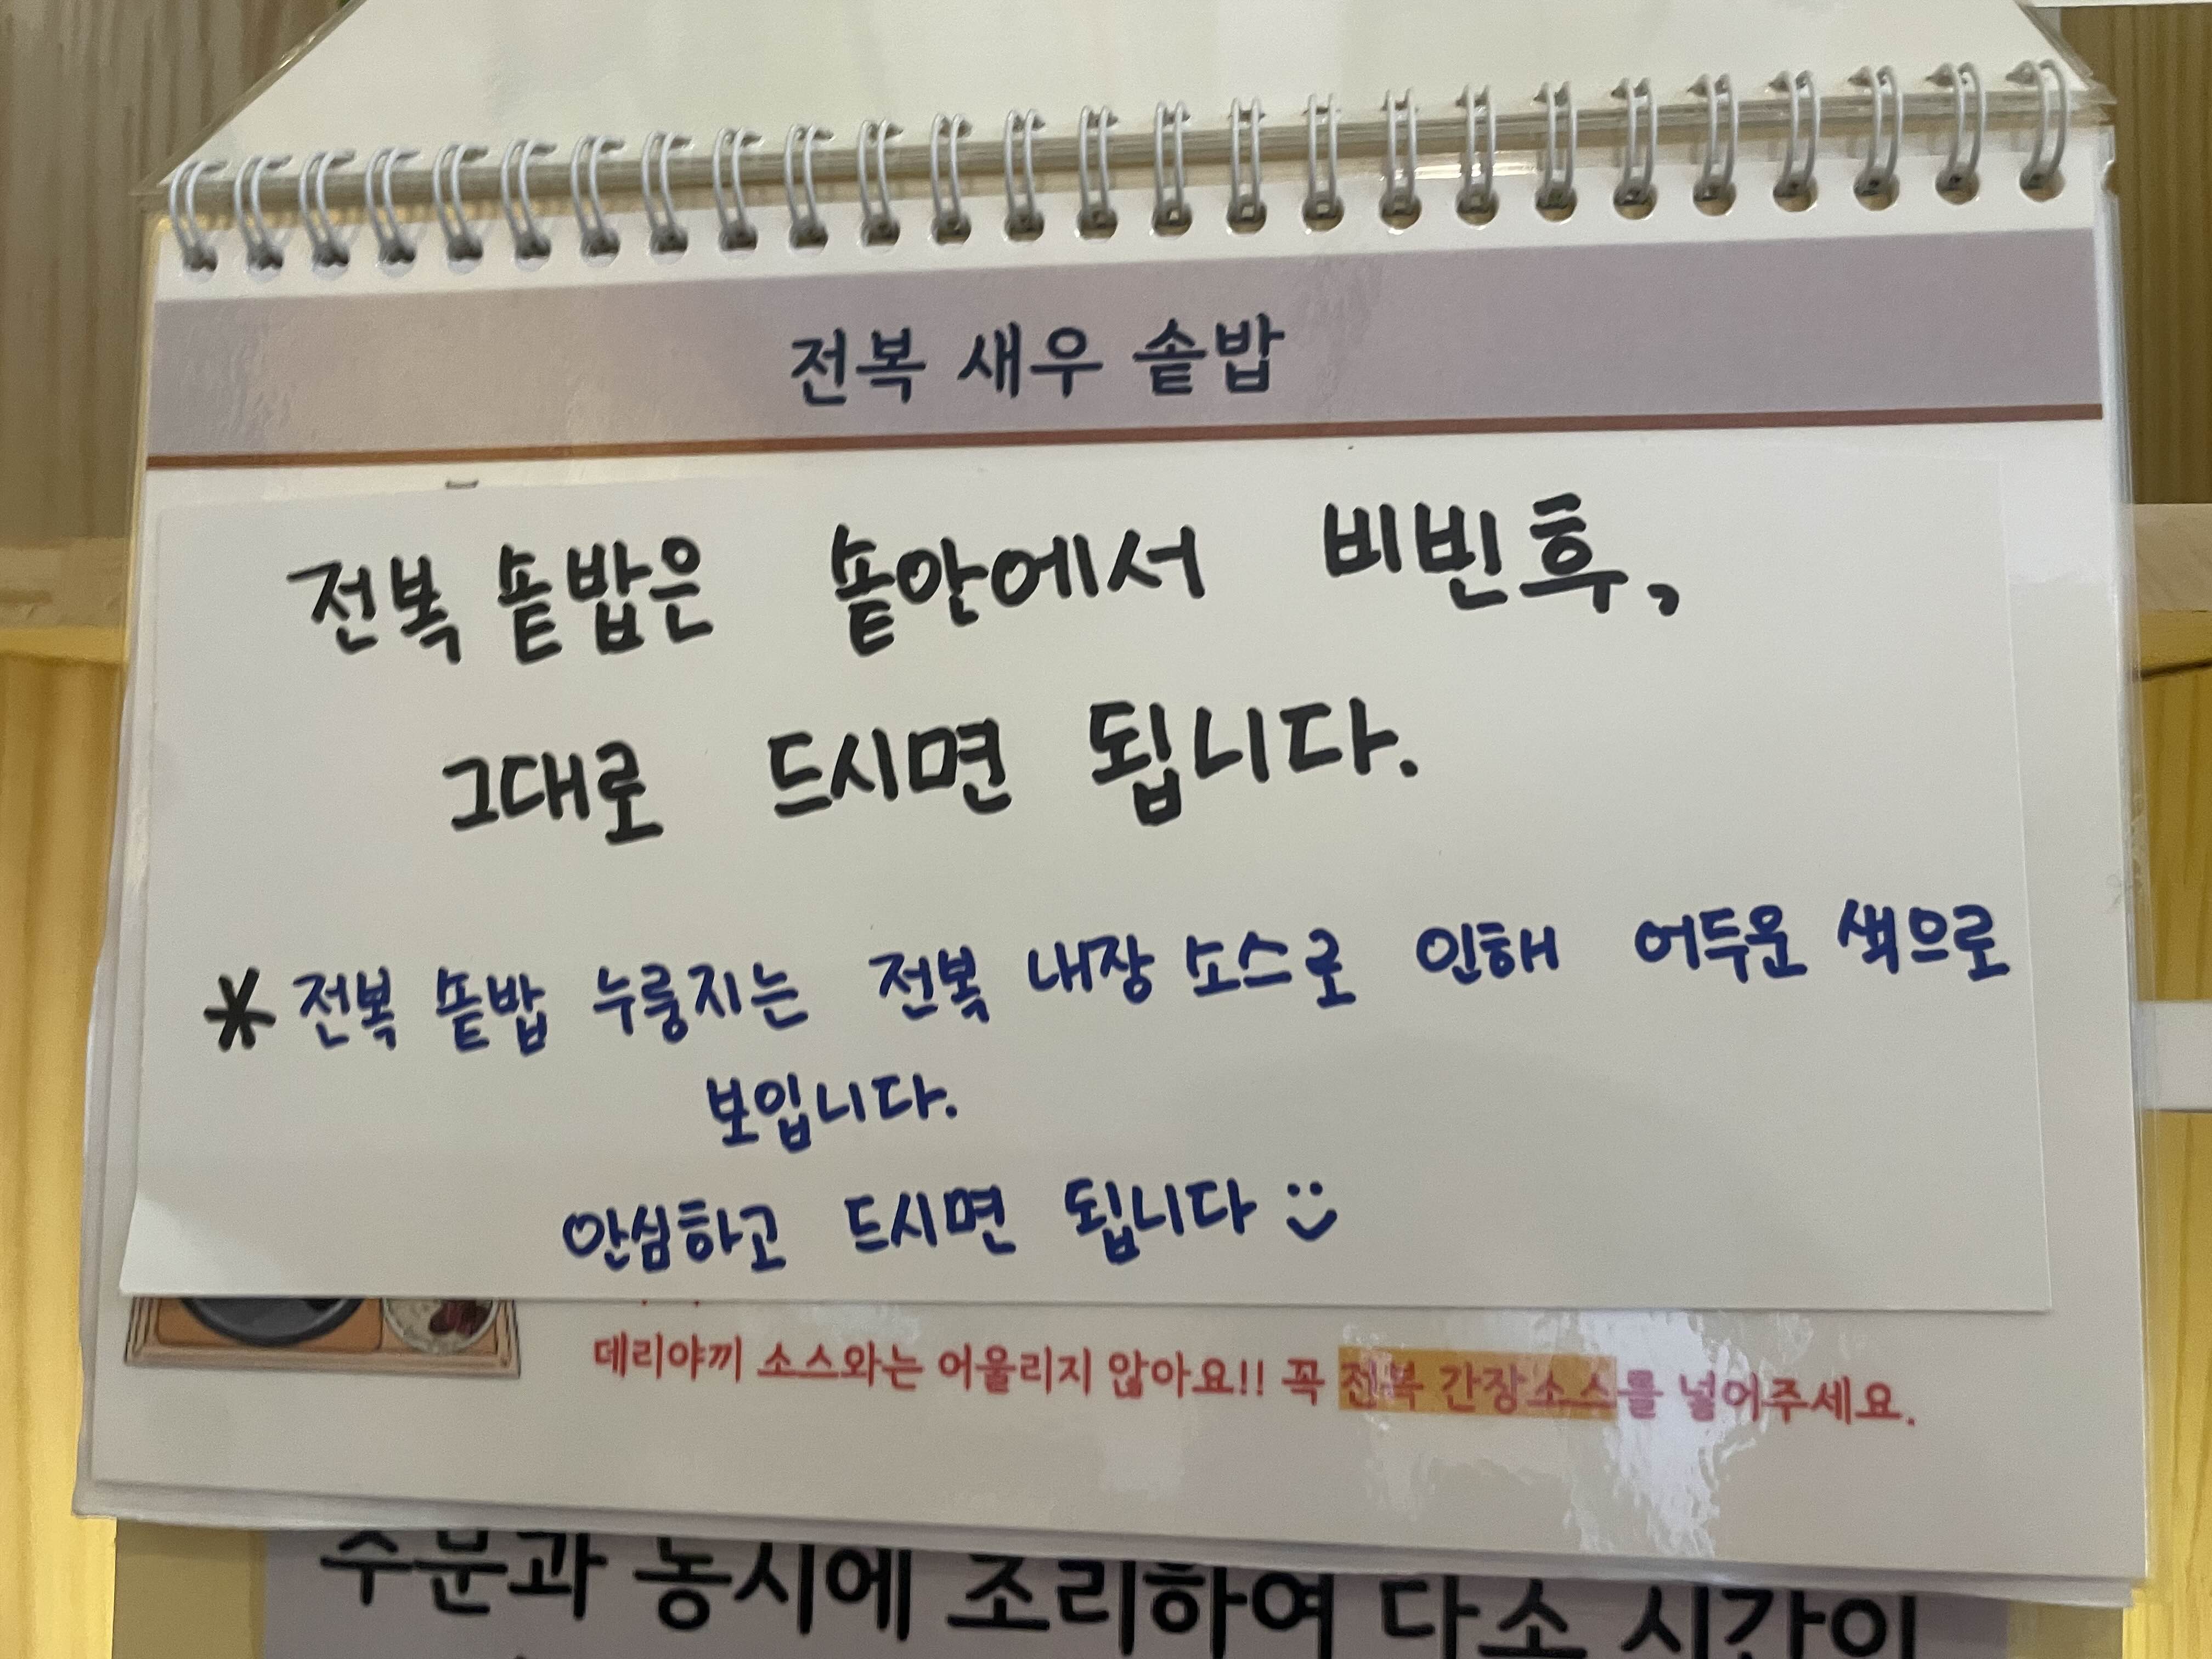 전복 새우 솥밥
전복 솥밥은 솥안에서 비빈후,
그대로 드시면 됩니다.
* 전복 솥밥 누룽지는 전복 내장 소스로 인해 어두운 색으로
보입니다.
안심하고 드시면 됩니다 :)
데리야끼 소스와는 어울리지 않아요!! 꼭 전복 간장소스를 넣어주세요.
주문과 동시에 조리하여 다소 시간이